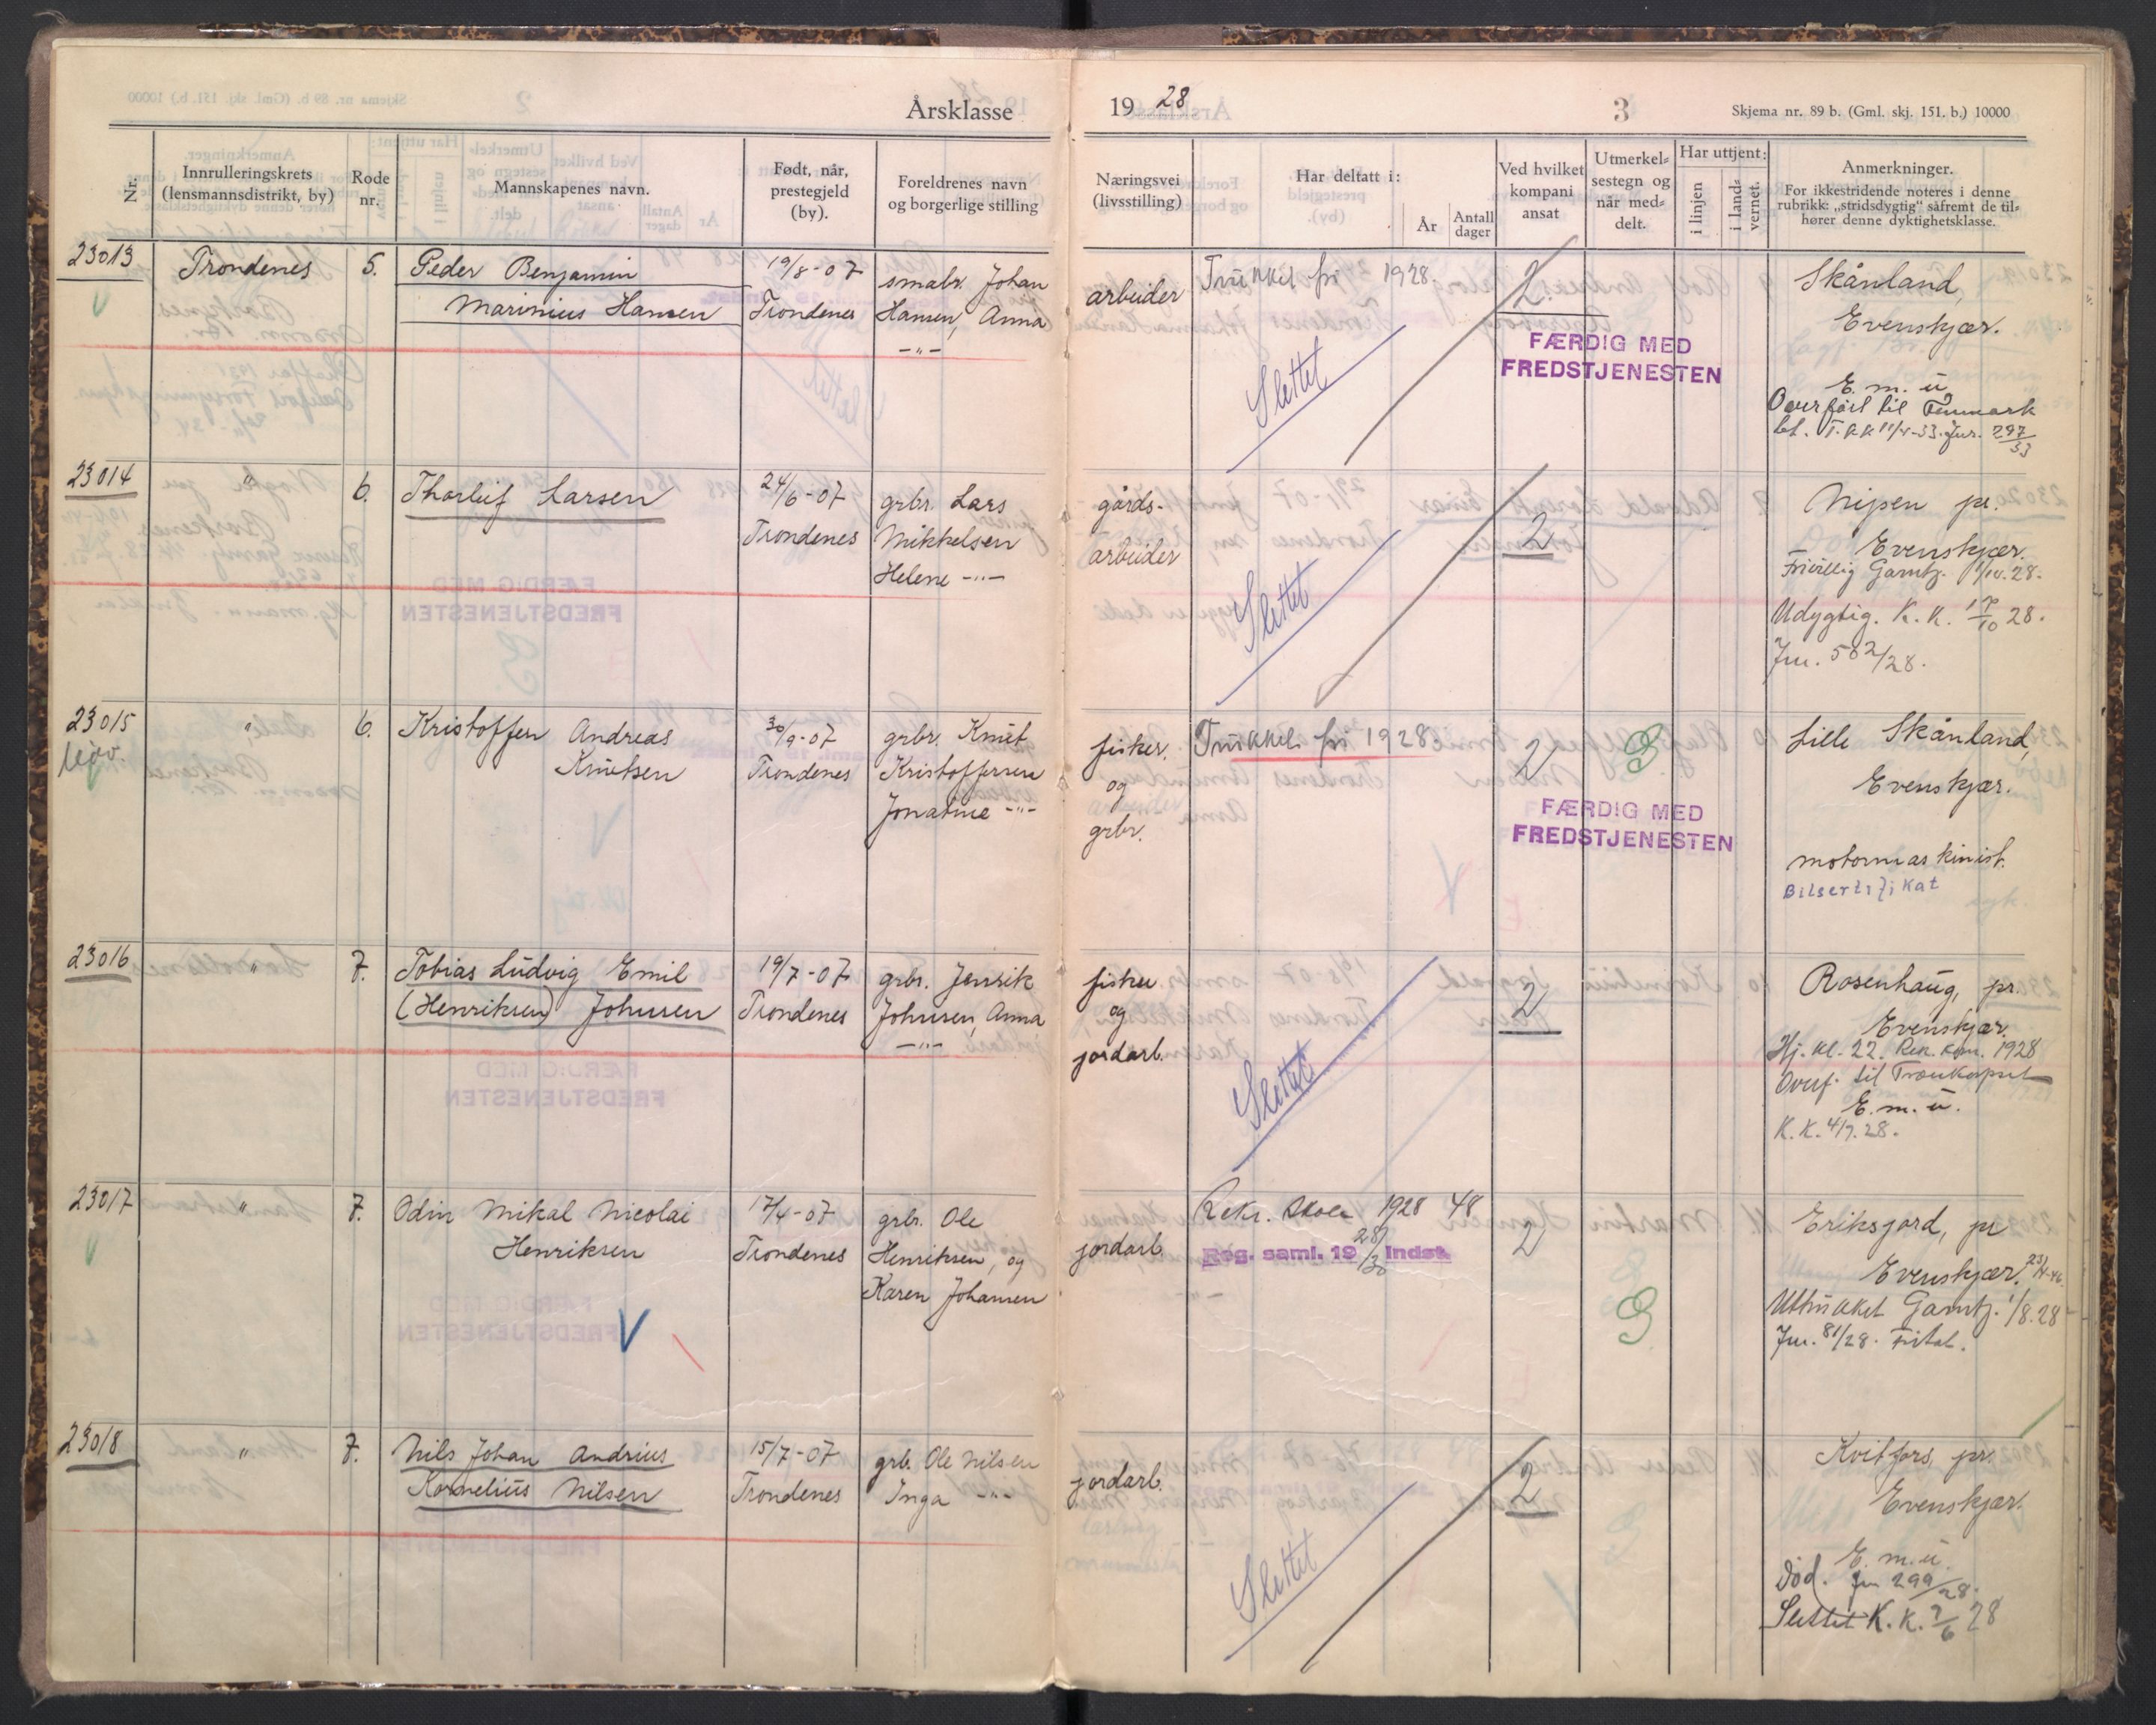 Årsklasse
19 28
3
Skjema nr. 89 b. (Gml. skj. 151. b.) 10000
Nr.
Innrulleringskrets
(lensmannsdistrikt, by)
Rode
nr.
Mannskapenes navn.
Født, når,
prestegjeld
(by).
Foreldrenes navn
og borgerlige stilling
Næringsvei
(livsstilling)
Har deltatt i:
År
Antall
dager
Ved hvilket
kompani
ansat
Utmerkel-
sestegn og
når med-
delt.
Har uttjent:
i linjen
i land-
vernet.
Anmerkninger.
For ikkestridende noteres i denne
rubrikk: „stridsdygtig" såfremt de til-
hører denne dyktighetsklasse.
23013
Trondenes
5.
Peder Benjamin
Marinius Hansen
19/8-07
Trondenes
smabr. Johan
Hansen, Anna
-"-
arbeider
Trukket fri 1928.
Slettet
2.
FÆRDIG MED
FREDSTJENESTEN
Skånland,
Evenskjær.
E. m. u
Overført til Finmark
297/33
23014
"
6.
Thorleif Larsen
24/6-07
Trondenes
grbr. Lars
Mikkelsen
Helene -"-
gårds-
arbeider
Slettet
2
Nipen pr.
Evenskjær.
Frivillig Garntj. 28.
Udygtig. K. K. 28.
Jnr. 582/28.
23015
"
6.
Kristoffer Andreas
Knutsen
30/9-07
Trondenes
grbr. Knut
Kristoffersen
Jonatine -"-
fisker
og
grbr.
Trukket fri 1928
2
FÆRDIG MED
FREDSTJENESTEN
Lille Skånland,
Evenskjær.
motormaskinist.
Bilsertifikat
23016
"
7.
Tobias Ludvig Emil
(Henriksen) Johnsen
19/7-07
Trondenes
grbr. Jenrik
Johnsen, Anna
-"-
fisker
og
jordarb.
Slettet
2
Rosenhaug, pr.
Evenskjær.
Hj. kl. 22. Rek. kom. 1928
Overf. til
E. m. u.
K. K. 4/7. 28.
23017
"
7.
Odin Mikal Nicolai
Henriksen
17/4-07
Trondenes
grbr. Ole
Henriksen, og
Karen Johansen
jordarb.
Rekr. skole 1928 48
Reg. saml. 19 28/30 Indst.
2
Eriksjord, pr
Evenskjær.
Uttrukket Garntj. 1/8.28
Jnr. 81/28. Frital.
23018
"
7.
Nils Johan Andrius
Kornelius Nilsen
15/7-07
Trondenes
grb. Ole Nilsen
Inga -"-
jordarb.
Slettet
2
Kvitfors, pr.
Evenskjær.
E. m. u.
død. Jnr 299/28.
Slettet K. K. 28